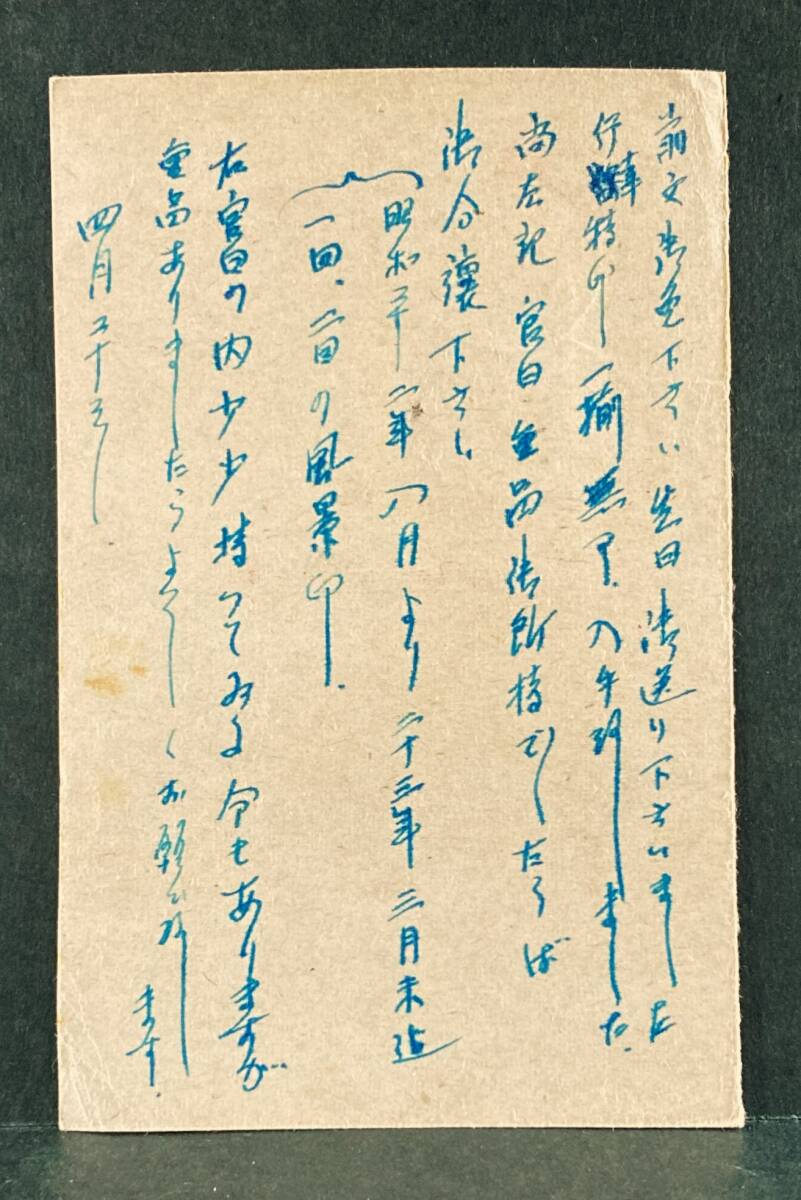 前文御免下さい 先日御送り下さいました
特印一揃無事入手致しました.
尚左記官白重品御所持でしたらば
御分譲下さい
昭和二十二年八月より二十三年三月末迄
一回、二回の風景印.
右官白の内少少持ってゐる分もありますが
重品ありましたらよろしくお願ひ致します.
四月二十